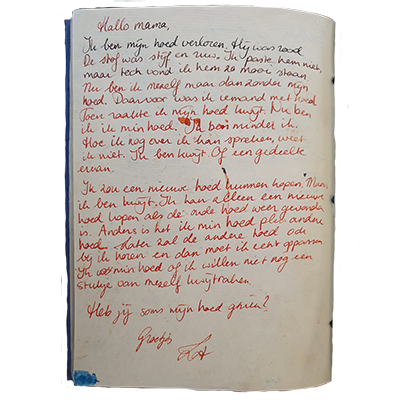 Hallo mama,
Ik ben mijn hoed verloren. Hij was rood.
De stof was stijf en ruw. Ik paste hem niet,
maar toch vond ik hem zo mooi staan.
Nu ben ik mezelf maar dan zonder mijn
hoed. Daarvoor was ik iemand met hoed.
Toen raakte ik mijn hoed kwijt. Nu ben
ik ik min hoed. Ik ben minder ik.
Hoe ik nog over ik kan spreken, weet
ik niet. Ik ben kwijt. Of een gedeelte
ervan.
Ik zou een nieuwe hoed kunnen kopen. Maar
ik ben kwijt. Ik kan alleen een nieuwe
hoed kopen als de oude hoed weer gevonden
is. Anders is het ik min hoed plus andere
hoed. Later zal de andere hoed ook
bij ik horen en dan moet ik echt oppassen.
Ik min hoed of ik willen niet nog een
stukje van mezelf kwijtraken.
Heb jij soms mijn hoed gezien?
Groetjes